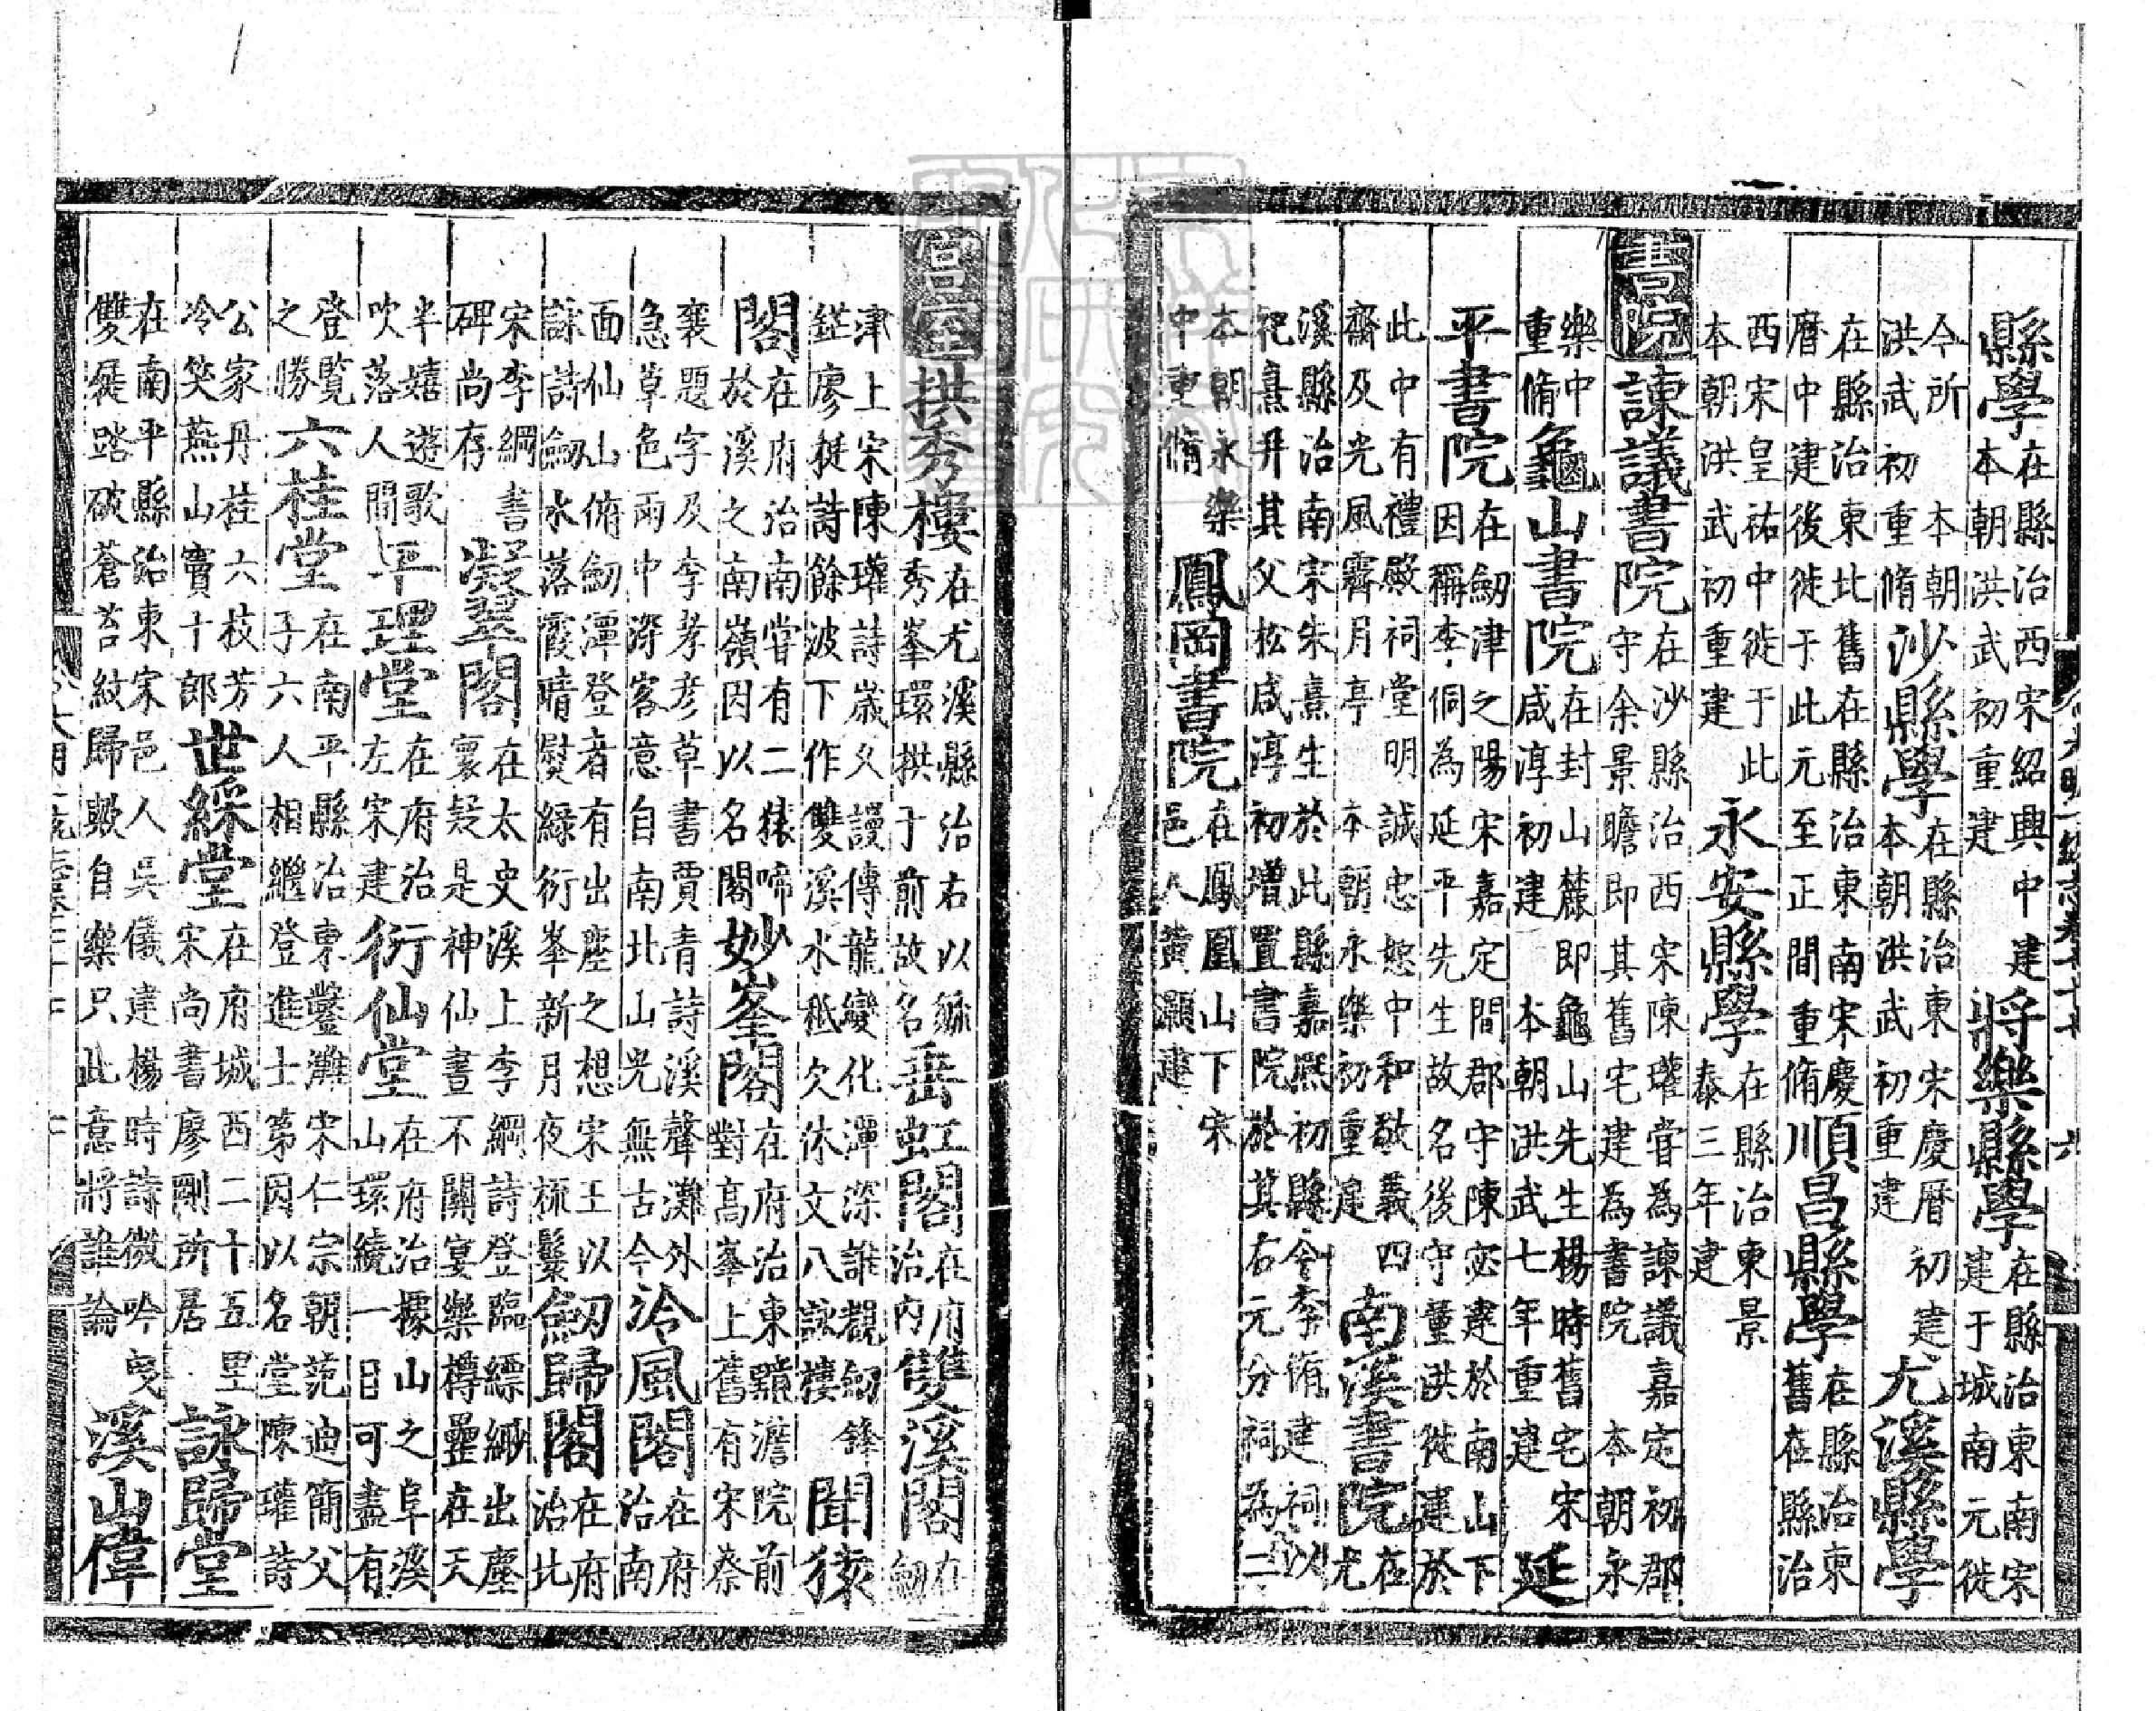 縣學在縣治西宋紹興中建本朝洪武初重建將樂縣學在縣治東南宋建于城南元徙
今所 本朝洪武初重脩沙縣學在縣治東宋慶曆初建本朝洪武初重建尤溪縣學
在縣治東北舊在縣治東南宋慶曆中建後徙于此元至正間重脩順昌縣學在縣治東舊在縣治
西宋皇祐中徙于此本朝洪武初重建永安縣學在縣治東景泰三年建
書院諫議書院在沙縣治西宋陳瓘甞為諫議嘉定初郡守余景瞻即其舊宅建為書院 本朝永
樂中重脩龜山書院在封山麓即龜山先生楊時舊宅宋咸淳初建 本朝洪武七年重建延
平書院在劒津之陽宋嘉定間郡守陳宓建於南山下因稱李侗為延平先生故名後守董洪徙建於
此中有禮殿祠堂明誠忠恕中和敬義四齋及光風霽月亭 本朝永樂初重建南溪書院在尤
溪縣治南宋朱熹生於此縣嘉熙初縣令李脩建祠以祀熹并其父松咸淳初增置書院於其右元分祠為二
本朝永樂中重脩鳳岡書院在鳳凰山下宋邑人黄灝建
宮室拱秀樓在尤溪縣治右以縣秀峯環拱于前故名垂虹閣在府治內雙溪閣在劒
津上宋陳瓘詩歲久謾傳龍變化潭深誰覩劒鋒鋩廖挺詩餘波下作雙溪水秪欠休文八詠樓聞猿
閣在府治南甞有二猿啼於溪之南嶺因以名閣妙峯閣在府治東驥澹院前對高峯上舊有宋蔡
襄題字及李孝彥草書賈青詩溪聲灘外急草色雨中深客意自南北山光無古今泠風閣在府治南
面仙山俯劒潭登者有出塵之想宋王以詠詩劒水落霞晴熨綠衍峯新月夜梳鬟劒歸閣在府治北
宋李綱書碑尚存凝翠閣在太史溪上李綱詩登臨縹緲出塵寰疑是神仙畫不關宴樂樽罍在天
半嬉遊歌吹落人間平理堂在府治左宋建衍仙堂在府治據山之阜溪山環繞一目可盡有
登覽之勝六桂堂在南平縣治東鑿灘宋仁宗朝范迪簡父子六人相繼登進士第因以名堂陳瓘詩
公家丹桂六枝芳冷笑燕山竇十郎世綵堂在府城西二十五里宋尚書廖剛所居詠歸堂
在南平縣治東宋邑人吳儀建楊時詩微吟曳雙屐踏破蒼苔紋歸歟自樂只此意將誰論溪山偉